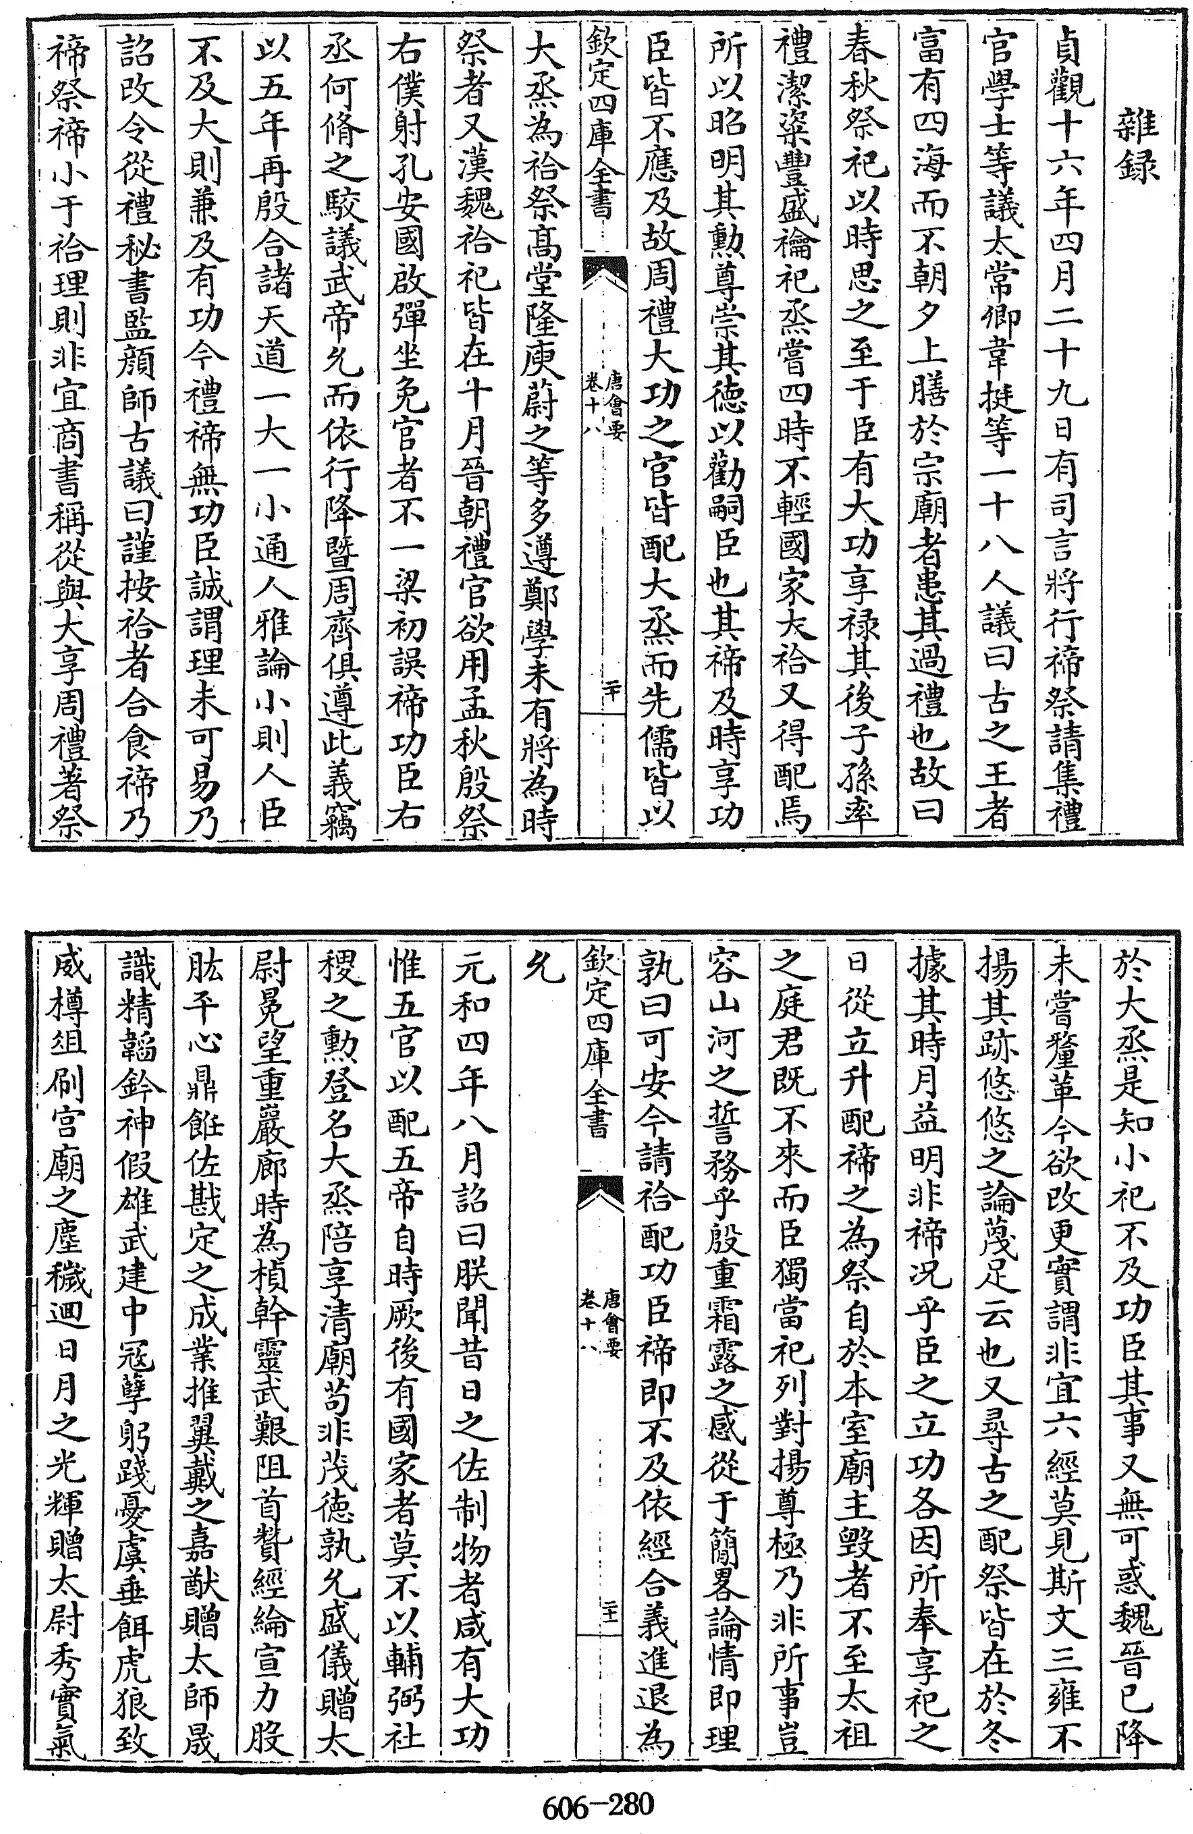 雜録
貞觀十六年四月二十九日有司言將行禘祭請集禮
官學士等議太常卿韋挺等一十八人議曰古之王者
富有四海而不朝夕上膳於宗廟者患其過禮也故曰
春秋祭祀以時思之至于臣有大功享禄其後子孫率
禮潔粢豐盛禴祀烝嘗四時不輕國家大祫又得配焉
所以昭明其勲尊崇其德以勸嗣臣也其禘及時享功
臣皆不應及故周禮大功之官皆配大烝而先儒皆以
欽定四庫全書 唐會要 卷十八 二十
大烝為祫祭髙堂隆庾蔚之等多遵鄭學未有將為時
祭者又漢魏祫祀皆在十月晉朝禮官欲用孟秋殷祭
右僕射孔安國啟彈坐免官者不一梁初誤禘功臣右
丞何脩之駮議武帝允而依行降暨周齊俱遵此義竊
以五年再殷合諸天道一大一小通人雅論小則人臣
不及大則兼及有功今禮禘無功臣誠謂理未可易乃
詔改令從禮秘書監顔師古議曰謹按祫者合食禘乃
禘祭禘小于祫理則非宜商書稱從與大享周禮著祭
於大烝是知小祀不及功臣其事又無可惑魏晉已降
未嘗釐革今欲改更實謂非宜六經莫見斯文三雍不
揚其跡悠悠之論蔑足云也又尋古之配祭皆在於冬
據其時月益明非禘况乎臣之立功各因所奉享祀之
日從立升配禘之為祭自於本室廟主毀者不至太祖
之庭君既不來而臣獨當祀列對揚尊極乃非所事豈
容山河之誓務乎殷重霜露之感從于簡畧論情即理
孰曰可安今請祫配功臣禘即不及依經合義進退為
欽定四庫全書 唐會要 卷十八 二十一
允
元和四年八月詔曰朕聞昔日之佐制物者咸有大功
惟五官以配五帝自時厥後有國家者莫不以輔弼社
稷之勲登名大烝陪享清廟茍非茂德孰允盛儀贈太
尉冕望重巖廊時為楨幹靈武艱阻首贊經綸宣力股
肱平心鼎飪佐戡定之成業推翼戴之嘉猷贈太師晟
識精韜鈐神假雄武建中冦孽躬踐憂虞垂餌虎狼致
威樽俎刷宫廟之塵穢迴日月之光輝贈太尉秀實氣
606-280